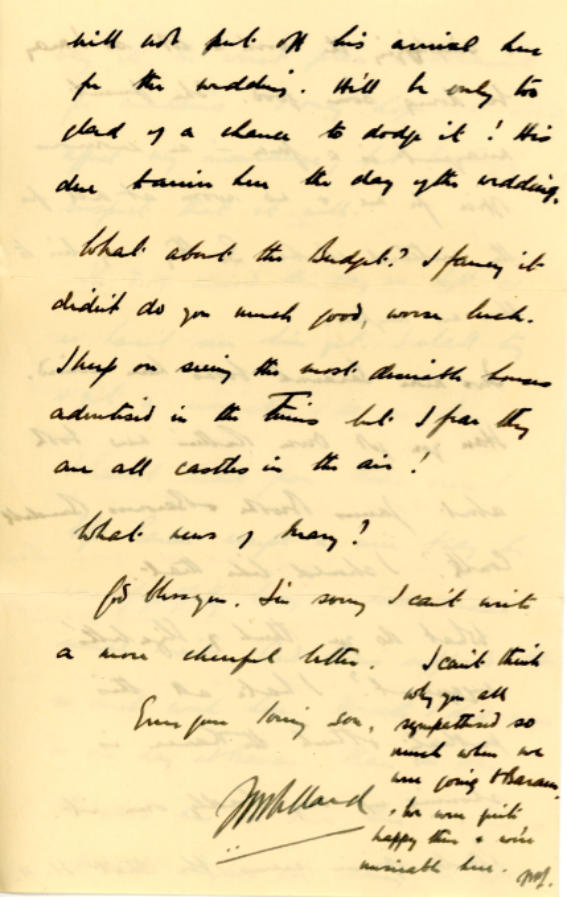 will not put off his arrival here
for the wedding. He'll be only too
glad of a chance to dodge it! His
due here the day of the wedding.
What about the Budget? I fancy it
didn't do you much good, worse luck.
I keep on seeing the most desirable houses
advertised in the Times but I fear they
are all castles in the air!
What news of Mary?
God bless you. I'm sorry I can't write
a more cheerful letter.
Ever your loving son,
I can't think
why you all
sympathised so
much when we
were going
. We were quite
happy there & we're
miserable here.